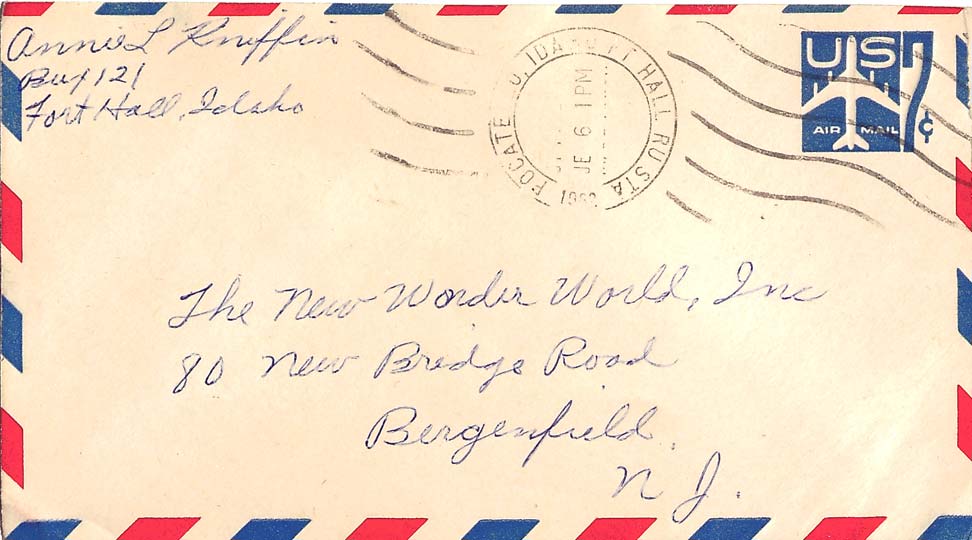 Anna L Kniffin
Box 121
Fort Hall, Idaho
POCATELLO, IDAHO FT HALL RUSTA
JE 6 1 PM
US 7¢
AIR MAIL
The New Wonder World, Inc
80 New Bridge Road
Bergenfield,
N J.